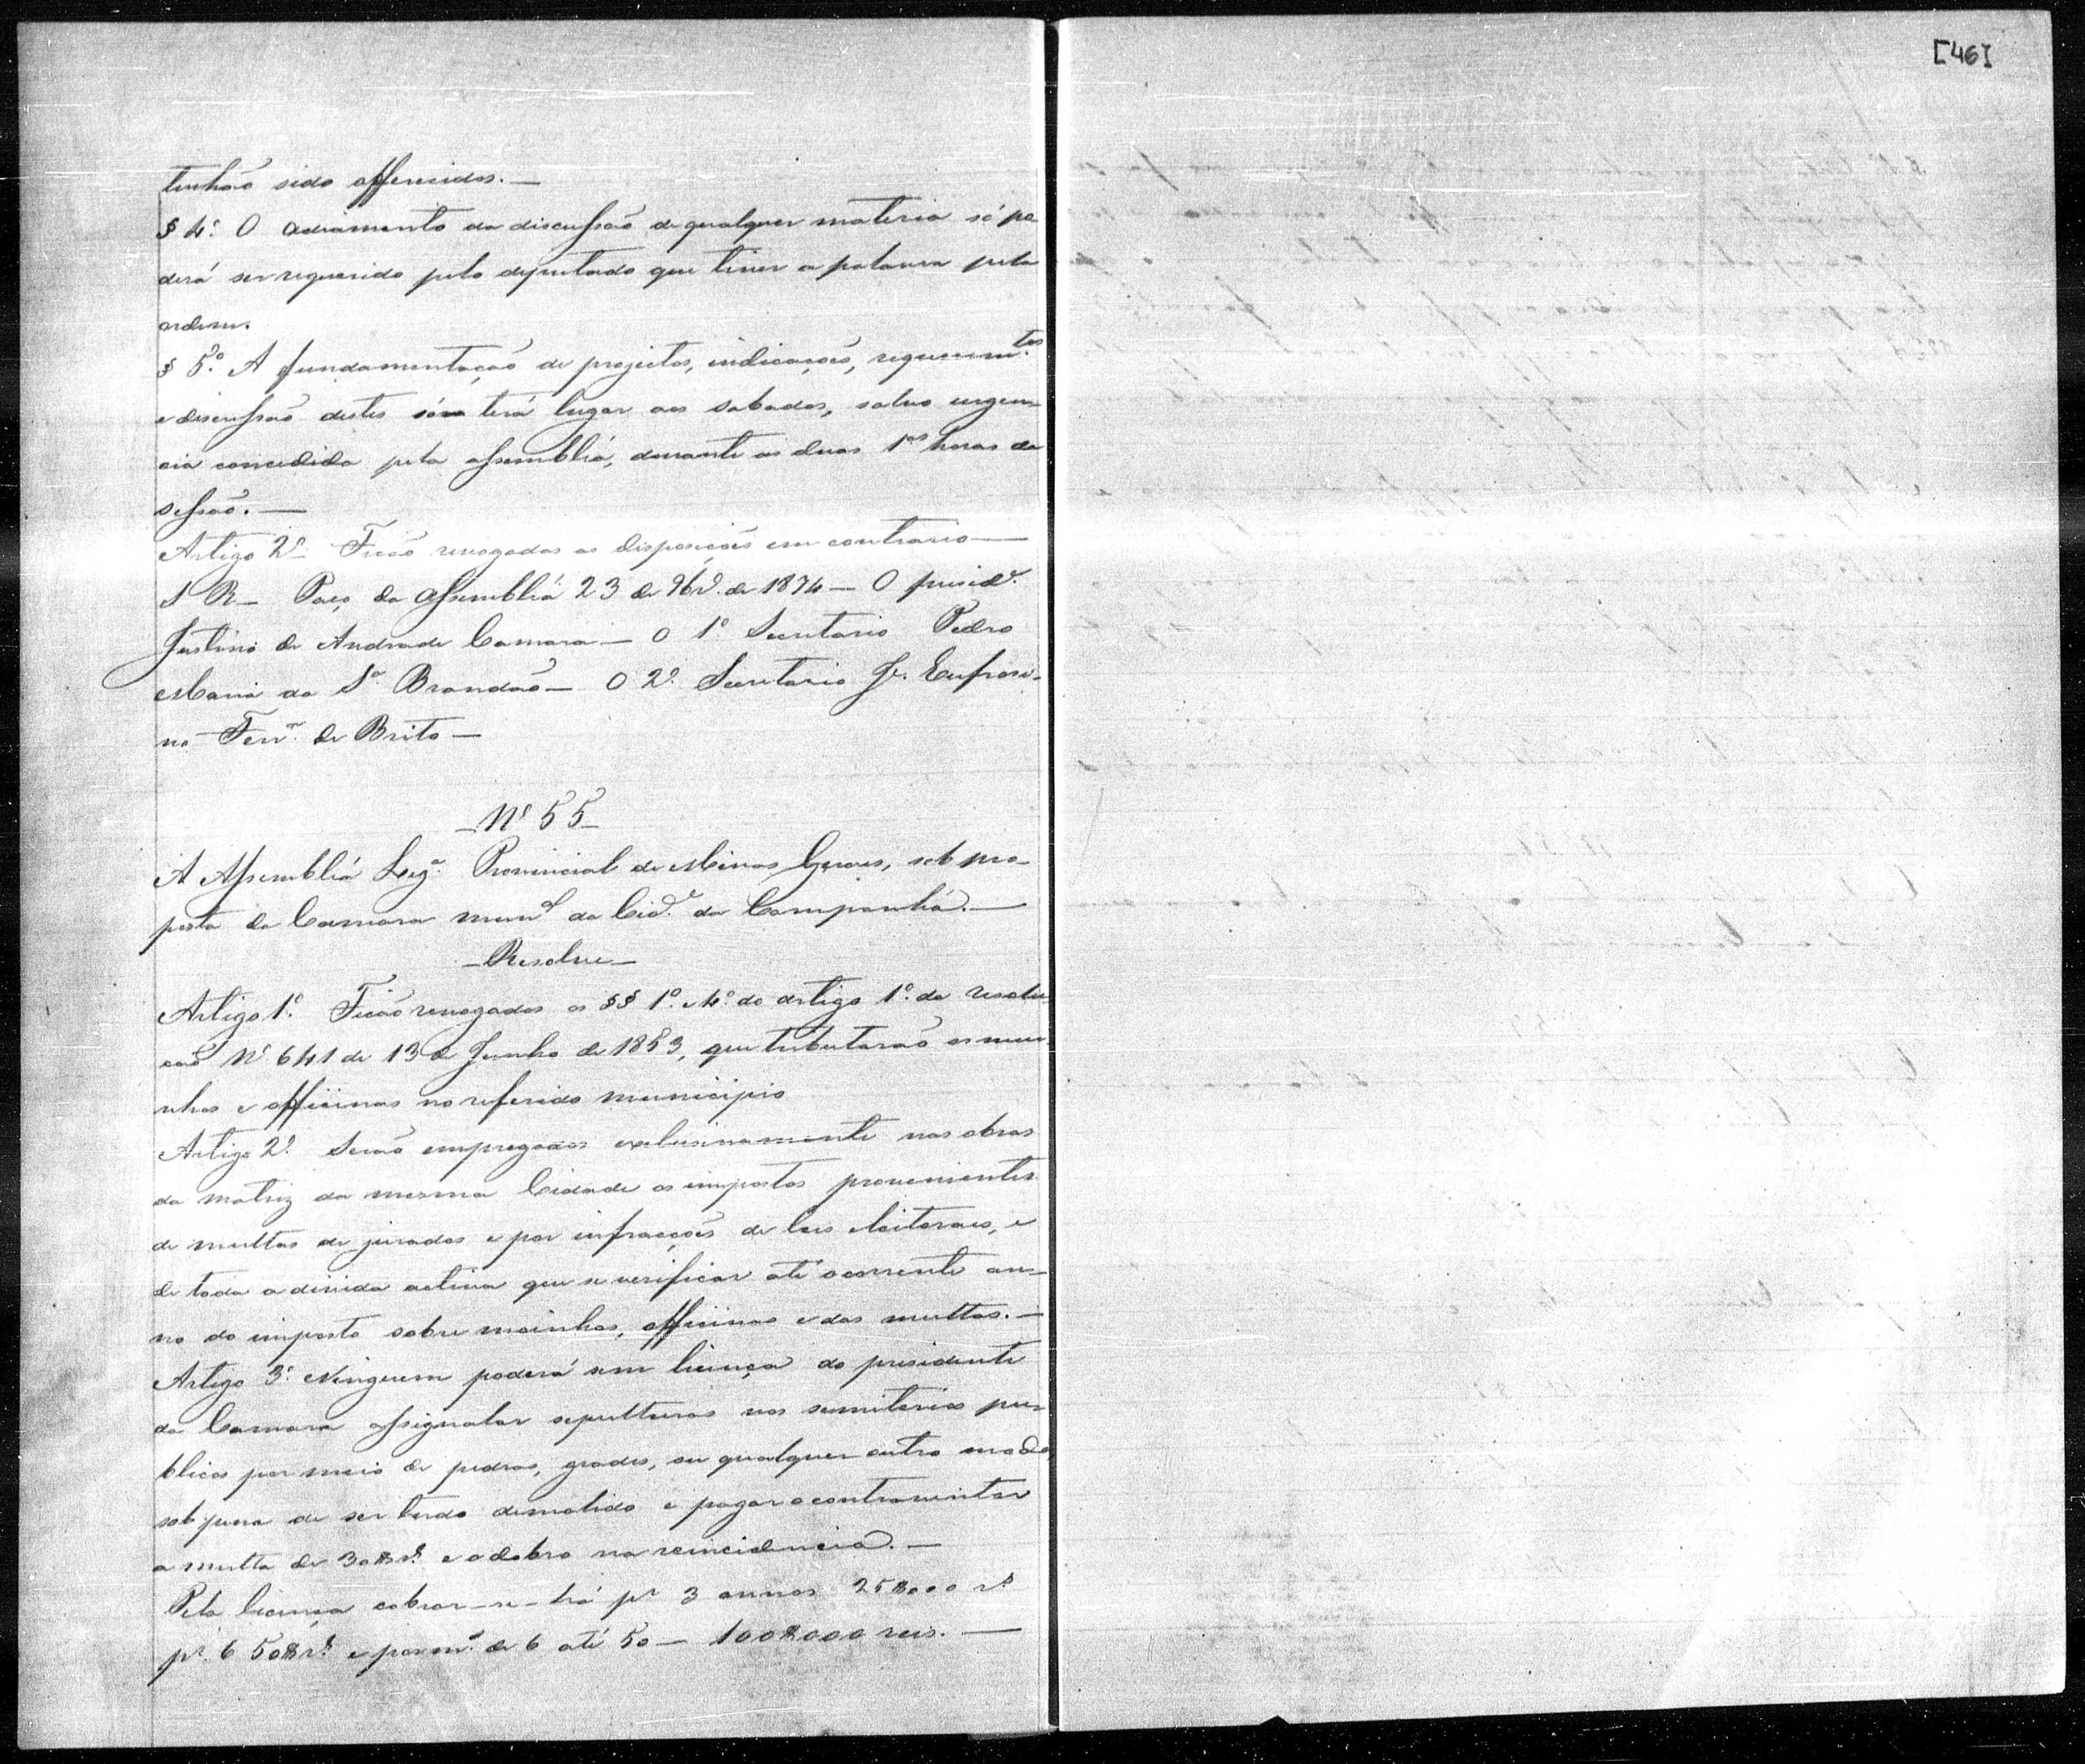 tenhão sido offerecidos.—
§ 4.º O adiamento da discussão de qualquer materia só po
derá ser requerido pelo deputado que tiver a palavra pela
ordem.
§ 5.º A fundamentação de projectos, indicações, requerim.tos
e discussão destes só terá lugar aos sabados, salvo urgen-
cia concedida pela assembléa, durante as duas 1as horas da
sessão.—
Artigo 2º Ficão revogadas as disposições em contrario—
S R— Paço da assembléa 23 de 9br.º de 1874— O presid.e
Justino de Andrade Camara— o 1º Secretario Pedro
Maria da S.a Brandão— O 2º Secretario Je. Eufrosi-
no Ferr.a de Brito—
—Nº 55—
A Assembléa Leg.a Provincial de Minas Geraes, sob pro-
posta da Camara mun.al da Cid.e da Campanha.—
—Resolve—
Artigo 1.º Ficão revogados os §§ 1º e 4º do artigo 1º da resolu
cão Nº 641 de 13 de Junho de 1853, que tributarão os mui
nhos e officinas no referido municipio
Artigo 2º Serão empregados exclusivamente nas obras
da matriz da mesma Cidade os impostos provenientes
de multas de jurados e por infracções de leis eleitoraes, e
de toda a divida activa que se verificar até o corrente an-
no do imposto sobre moinhos, officinas e das multas.—
Artigo 3.º Ninguem poderá sem licença do presidente
da Camara assignalar sepulturas nos semiterios pu-
blicos por meio de pedras, grades, ou qualquer outro modo
sob pena de ser tudo demolido e pagar o contraventor
a multa de 30$rs. e o dobro na reincidencia.—
Pela licença cobrar-se-há pr 3 annos 25$000 rs
pr. 6 50$rs. e por m.s de 6 até 50— 100$000 reis.—
[46]